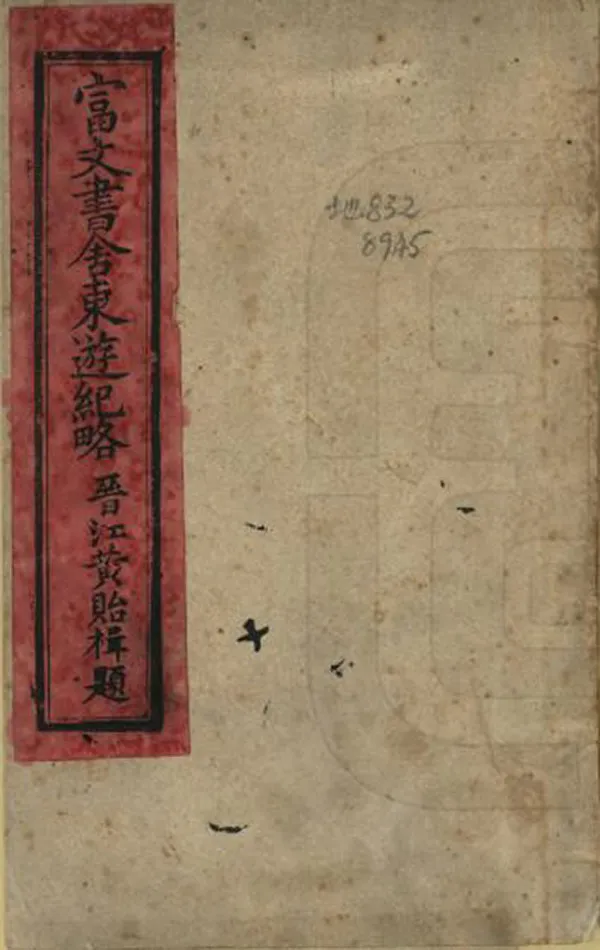 富文書舍東遊紀略 晉江黃貽楫題
地832
8945